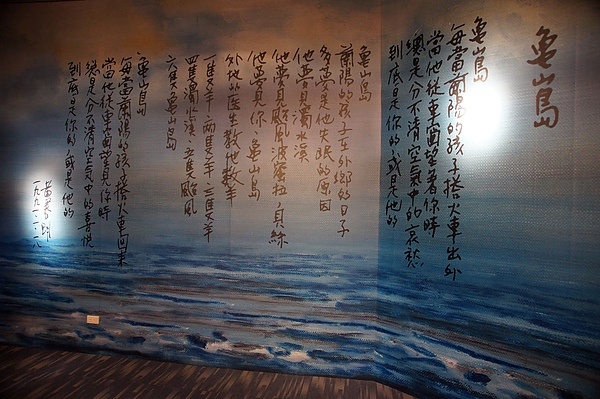 龜山島
龜山島
每當蘭陽的孩子搭火車出外
當他從車窗望著你時
總是分不清空氣中的哀愁
到底是你的，或是他的
龜山島
蘭陽的孩子在外鄉的日子
多夢是他失眠的原因
他夢見濁水溪
他夢見颱風波蜜拉、貝絲
他夢見你，龜山島
外地的医生教他數羊
一隻羊、兩隻羊、三隻羊
四隻濁水溪、五隻颱風
六隻龜山島
龜山島
每當蘭陽的孩子搭火車回來
當他從車窗望見你時
總是分不清空氣中的喜悅
到底是你的，或是他的
黃春明